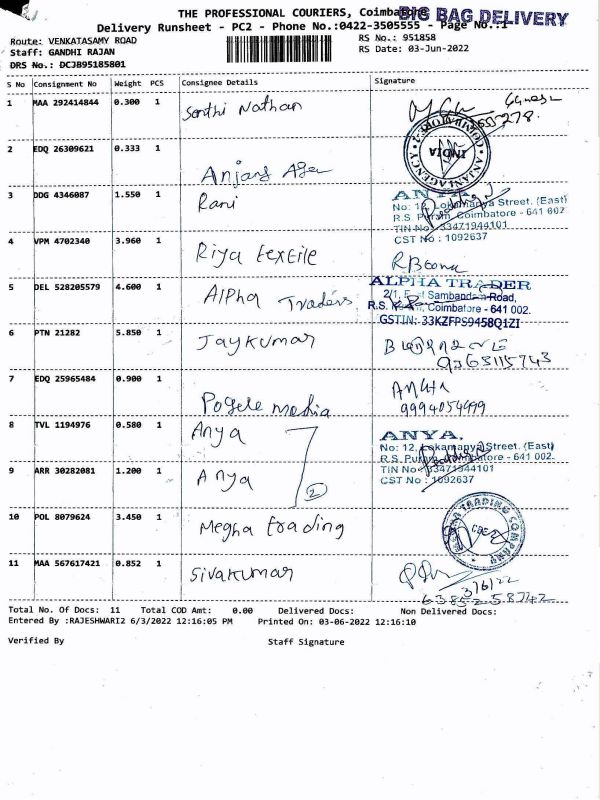 THE PROFESSIONAL COURIERS, Coimbatore
BIG BAG DELIVERY
Delivery Runsheet - PC2 - Phone No.:0422-3505555 - Page No.:1
Route: VENKATASAMY ROAD
RS No.: 951858
Staff: GANDHI RAJAN
RS Date: 03-Jun-2022
DRS No.: DCJB95185801
S No Consignment No Weight PCS Consignee Details Signature
1 MAA 292414844 0.300 1 Santhi Nathan
Ganesh
ANJANI AGENCY
INDIA
2 EDQ 26309621 0.333 1 Anjang Agen
3 DDG 4346087 1.550 1 Rani
ANYA
No: 12, Lokamanya Street. (East)
R.S. Puram, Coimbatore - 641 002.
TIN No: 33471944101
CST No : 1092637
4 VPM 4702340 3.960 1 Riya textile
R. Beena
5 DEL 528205579 4.600 1 Alpha Traders
ALPHA TRADER
2/1, East Sambandam Road,
R.S. Puram, Coimbatore - 641 002.
GSTIN: 33KZFPS9458Q1ZI
6 PTN 21282 5.850 1 Jaykumar
9363115743
7 EDQ 25965484 0.900 1 media
9994054499
8 TVL 1194976 0.580 1 Anya
ANYA.
No: 12, Lokamanya Street. (East)
R.S. Puram, Coimbatore - 641 002.
TIN No: 33471944101
CST No : 1092637
9 ARR 30282081 1.200 1 Anya
2
10 POL 8079624 3.450 1 Megha trading
MEGHA TRADING COMPANY
CBE-2
11 MAA 567617421 0.852 1 Sivakumar
3/6/22
63852 58742
Total No. Of Docs: 11 Total COD Amt: 0.00 Delivered Docs: Non Delivered Docs:
Entered By :RAJESHWARI2 6/3/2022 12:16:05 PM Printed On: 03-06-2022 12:16:10
Verified By Staff Signature